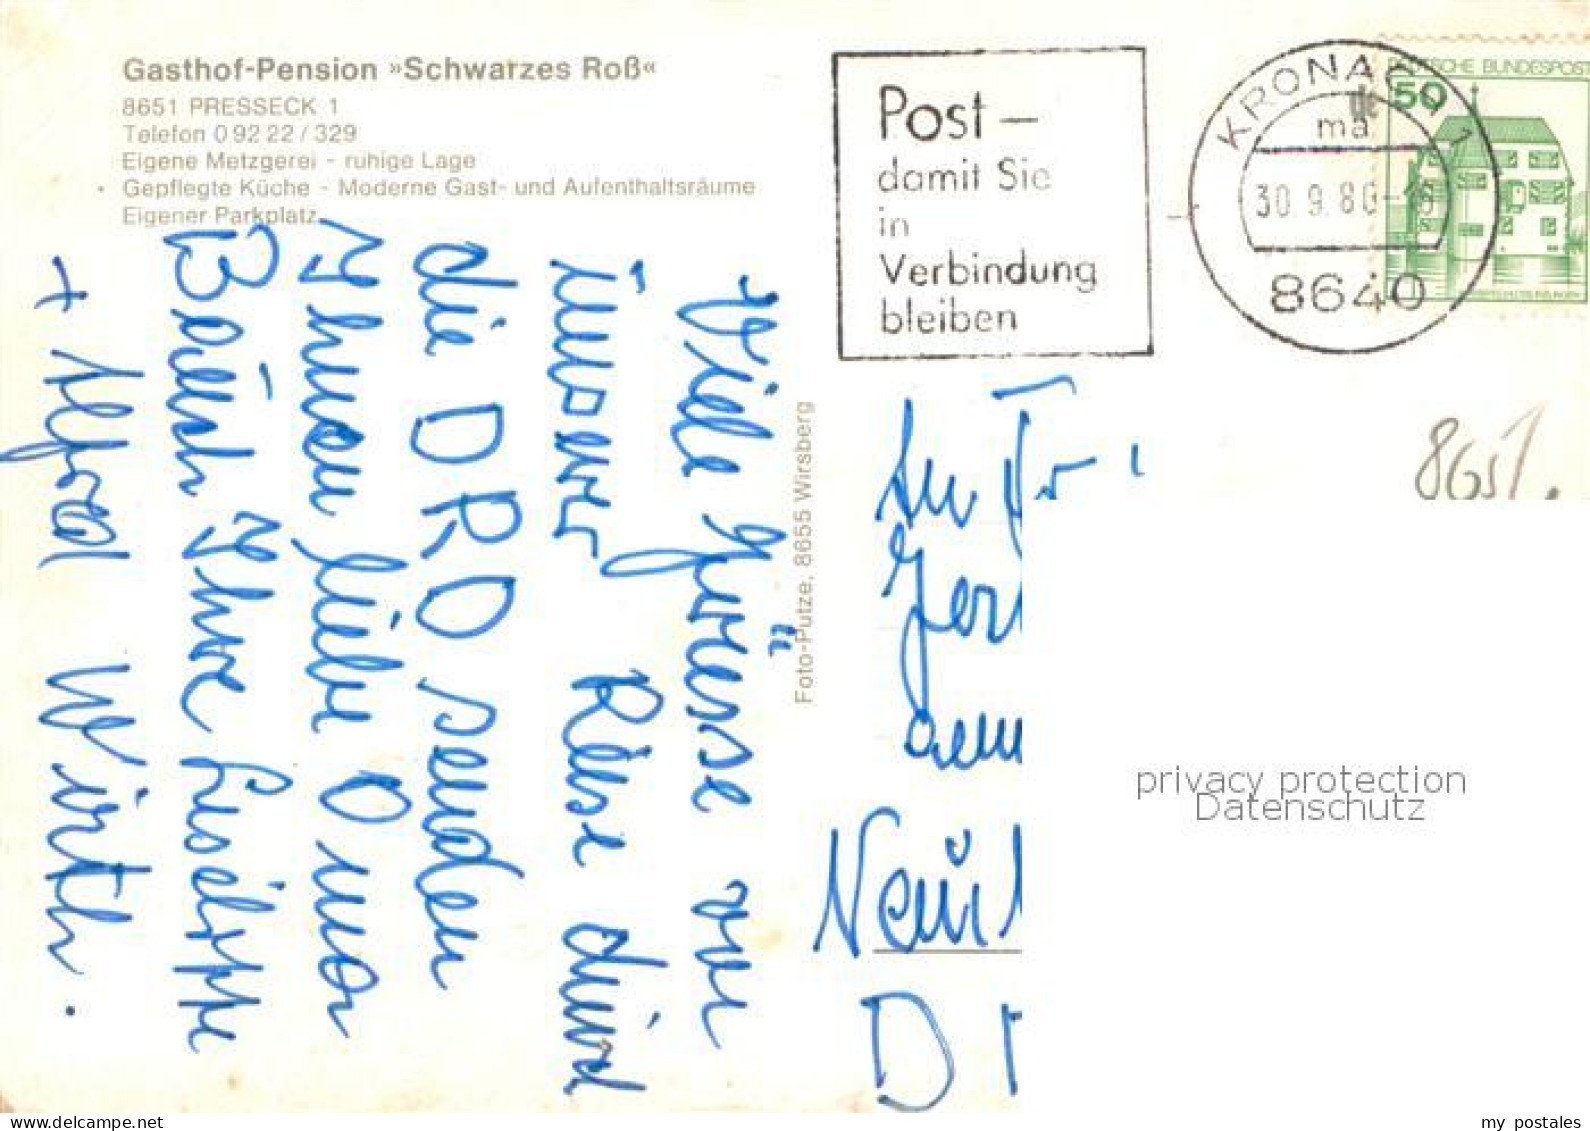 Gasthof-Pension »Schwarzes Roß«
8651 PRESSECK 1
Telefon 0 92 22 / 329
Eigene Metzgerei - ruhige Lage
Gepflegte Küche - Moderne Gast- und Aufenthaltsräume
Eigener Parkplatz
Viele Grüesse von
unserer Reise durch
die DRO senden
Ihnen liebe Oma
Ihre Liselotte
+ Alfred Wirth.
Foto-Putze, 8655 Wirsberg
Post –
damit Sie
in
Verbindung
bleiben
KRONACH 1
ma
30.9.80
8640
DEUTSCHE BUNDESPOST
50
8651.
An Fr
D
privacy protection
Datenschutz
my postales